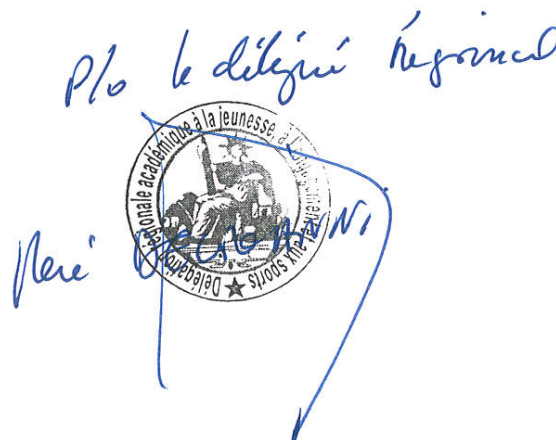 P/o le délégué régional
Délégation régionale académique à la jeunesse, à l'engagement et aux sports
René